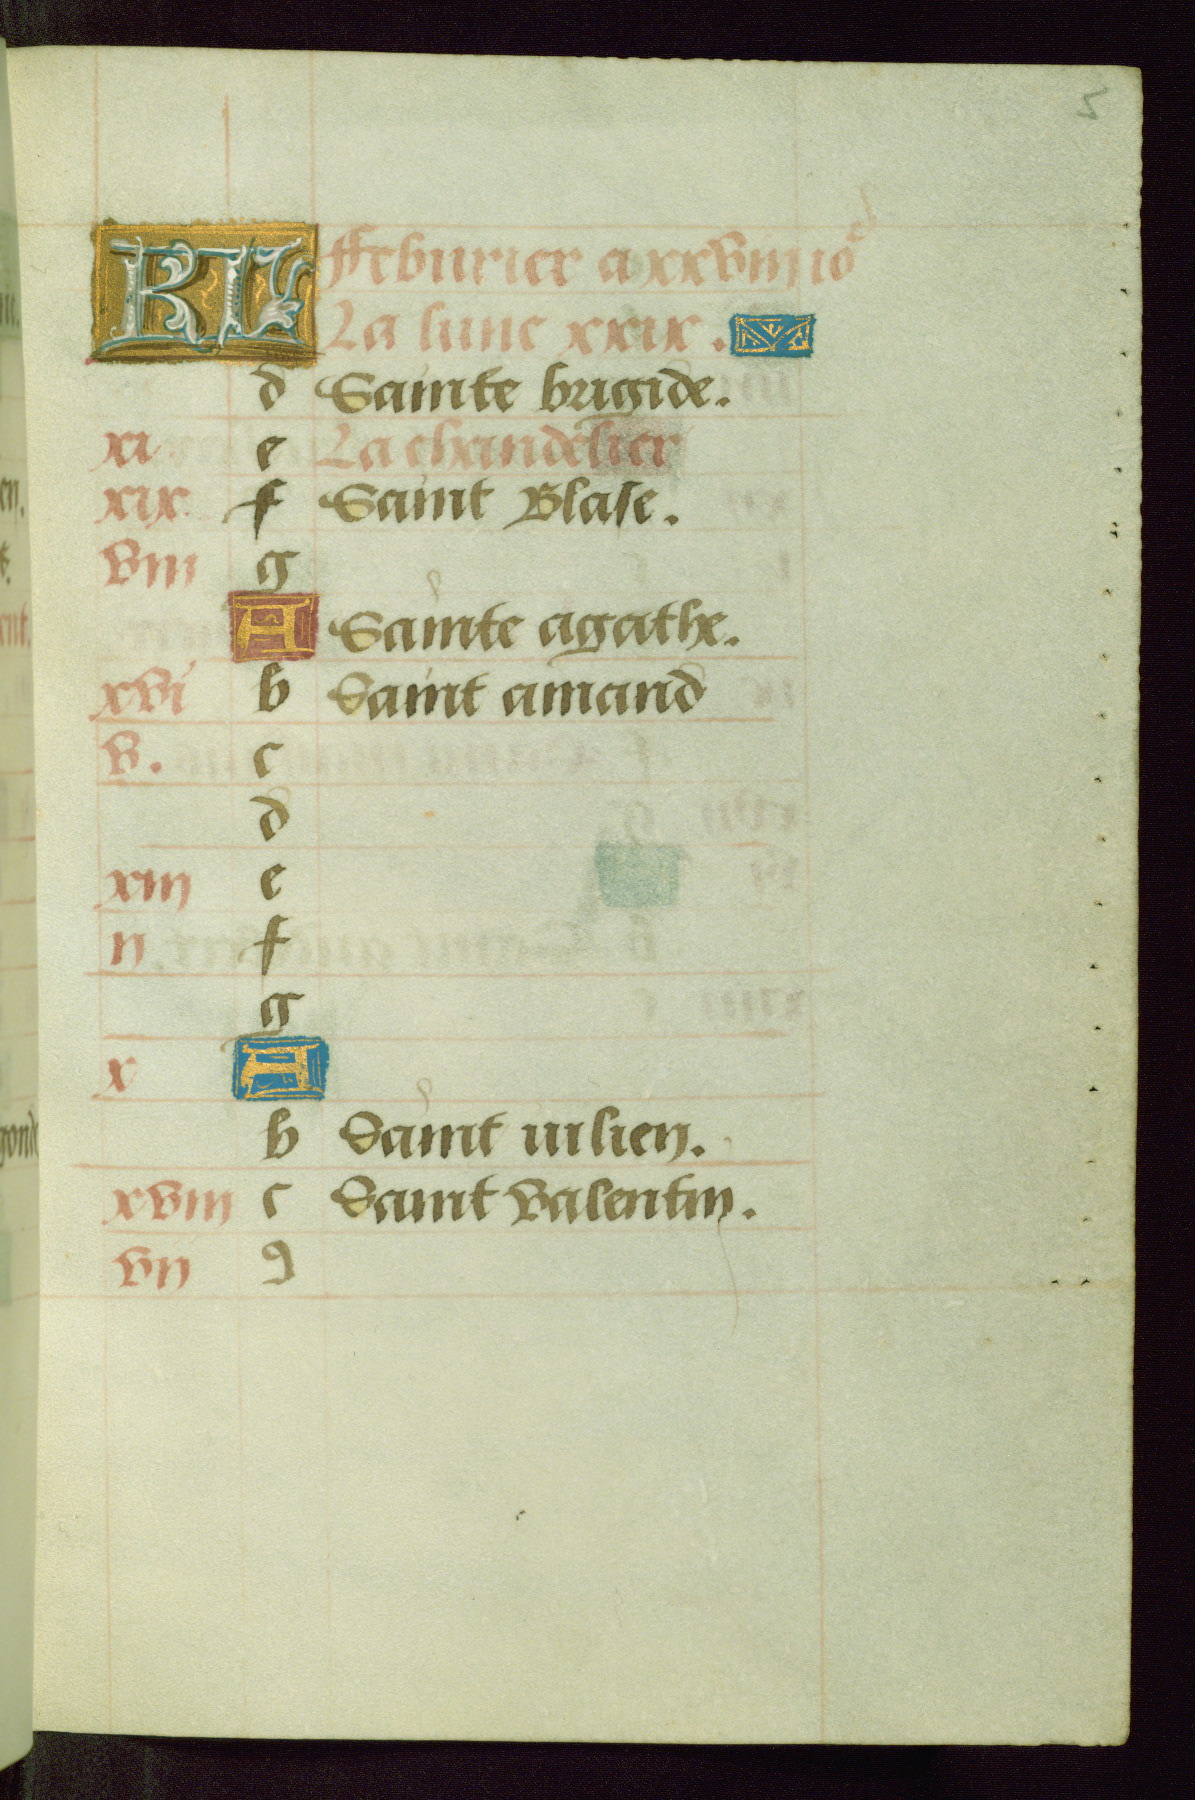 5
KL ffeburier a xxviii io
La lune xxix.
d Sainte brigide.
xi e La chandelier
xix f Saint Blase.
viii g
A Sainte agathe.
xvi b Saint amand
v. c
d
xiii e
ii f
g
x A
b Saint iulien.
xviii c Saint valentin.
vii d